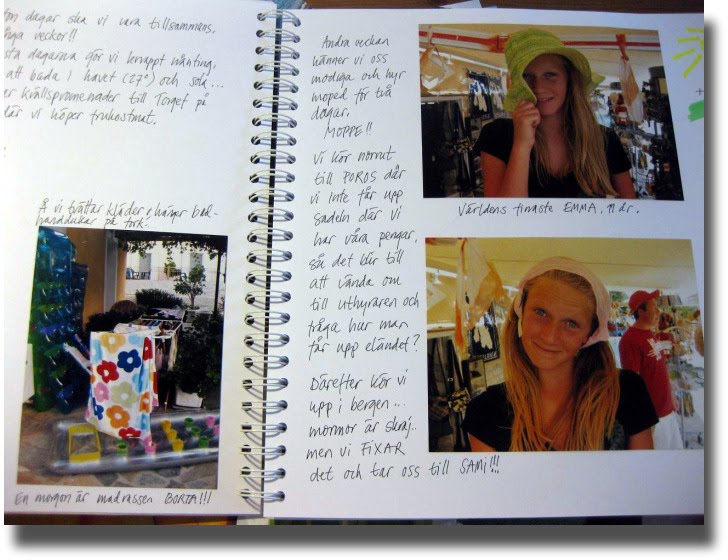 dagar ska vi vara tillsammans,
veckor!!
dagarna gör vi knappt nånting,
att bada i havet (27°) och sola...
kvällspromenader till Torget på
där vi köper frukostmat.
Å vi tvättar kläder & hänger bad-
handdukar på tork.
En morgon är madrassen BORTA!!!
Andra veckan
känner vi oss
modiga och hyr
moped för två
dagar.
MOPPE!!
Vi kör norrut
till POROS där
vi inte får upp
sadeln där vi
har våra pengar,
så det blir till
att vända om
till uthyraren och
fråga hur man
får upp eländet?
Därefter kör vi
upp i bergen...
mormor är skraj..
men vi FIXAR
det och tar oss till SAMI!!!
Världens finaste EMMA, 11 år.